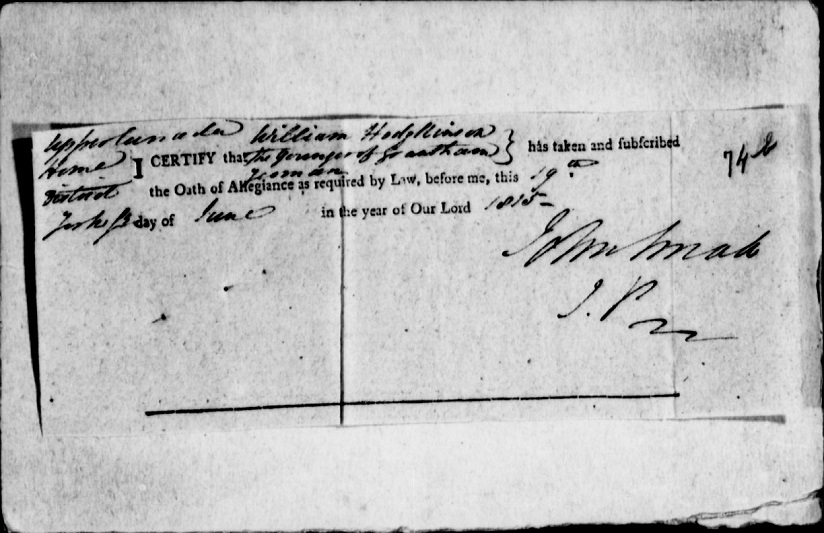 Upper Canada William Hodgkinson
Home I CERTIFY that the younger of Grantham } has taken and subscribed 74
District Yeoman
the Oath of Allegiance as required by Law, before me, this 19th
York day of June in the year of Our Lord 1815-
John
J. P.